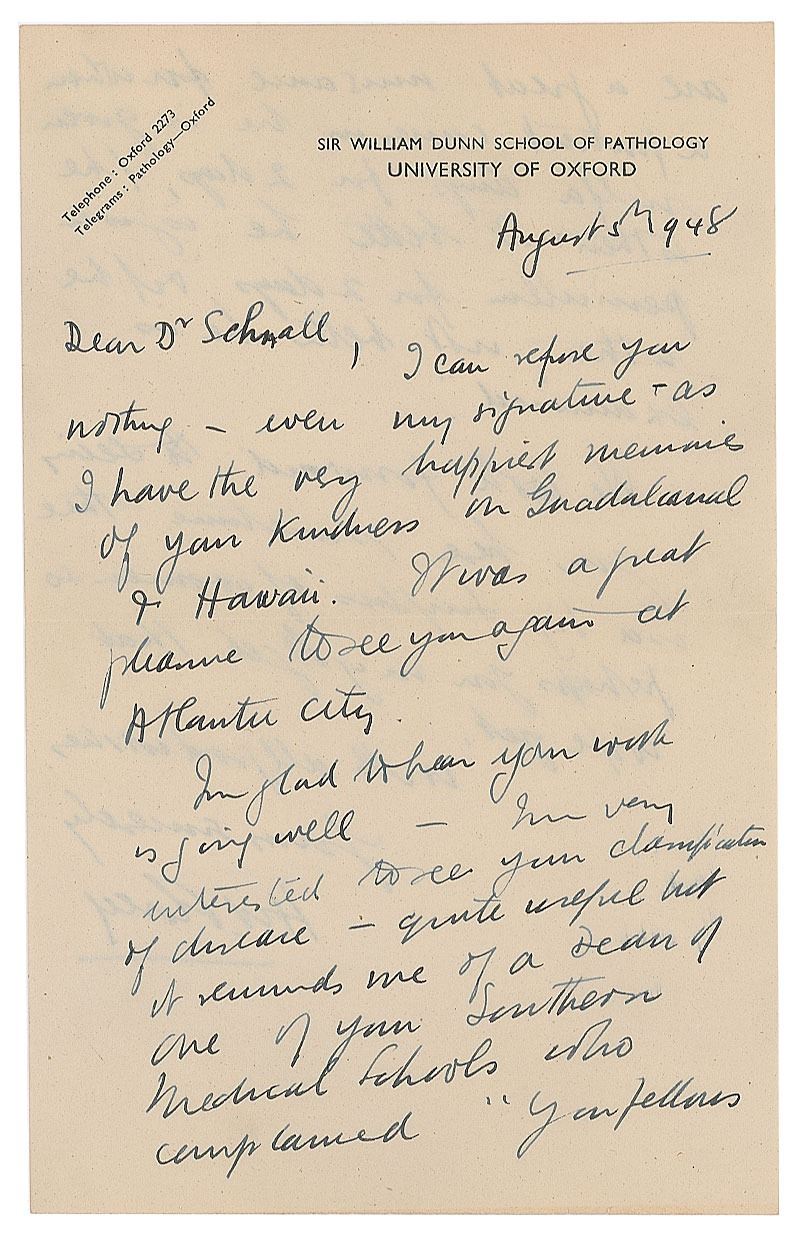 Telephone: Oxford 2273
Telegrams: Pathology—Oxford
SIR WILLIAM DUNN SCHOOL OF PATHOLOGY
UNIVERSITY OF OXFORD
August 5th 1948
Dear Dr Schnall, I can refuse you
nothing – even my signature – as
I have the very happiest memories
of your kindness on Guadalcanal
& Hawaii. It was a great
pleasure to see you again at
Atlantic City.
I'm glad to hear your work
is going well – I'm very
interested to see your classification
of disease – quite useful but
it reminds me of a Dean of
one of your Southern
Medical Schools who
complained "You fellows